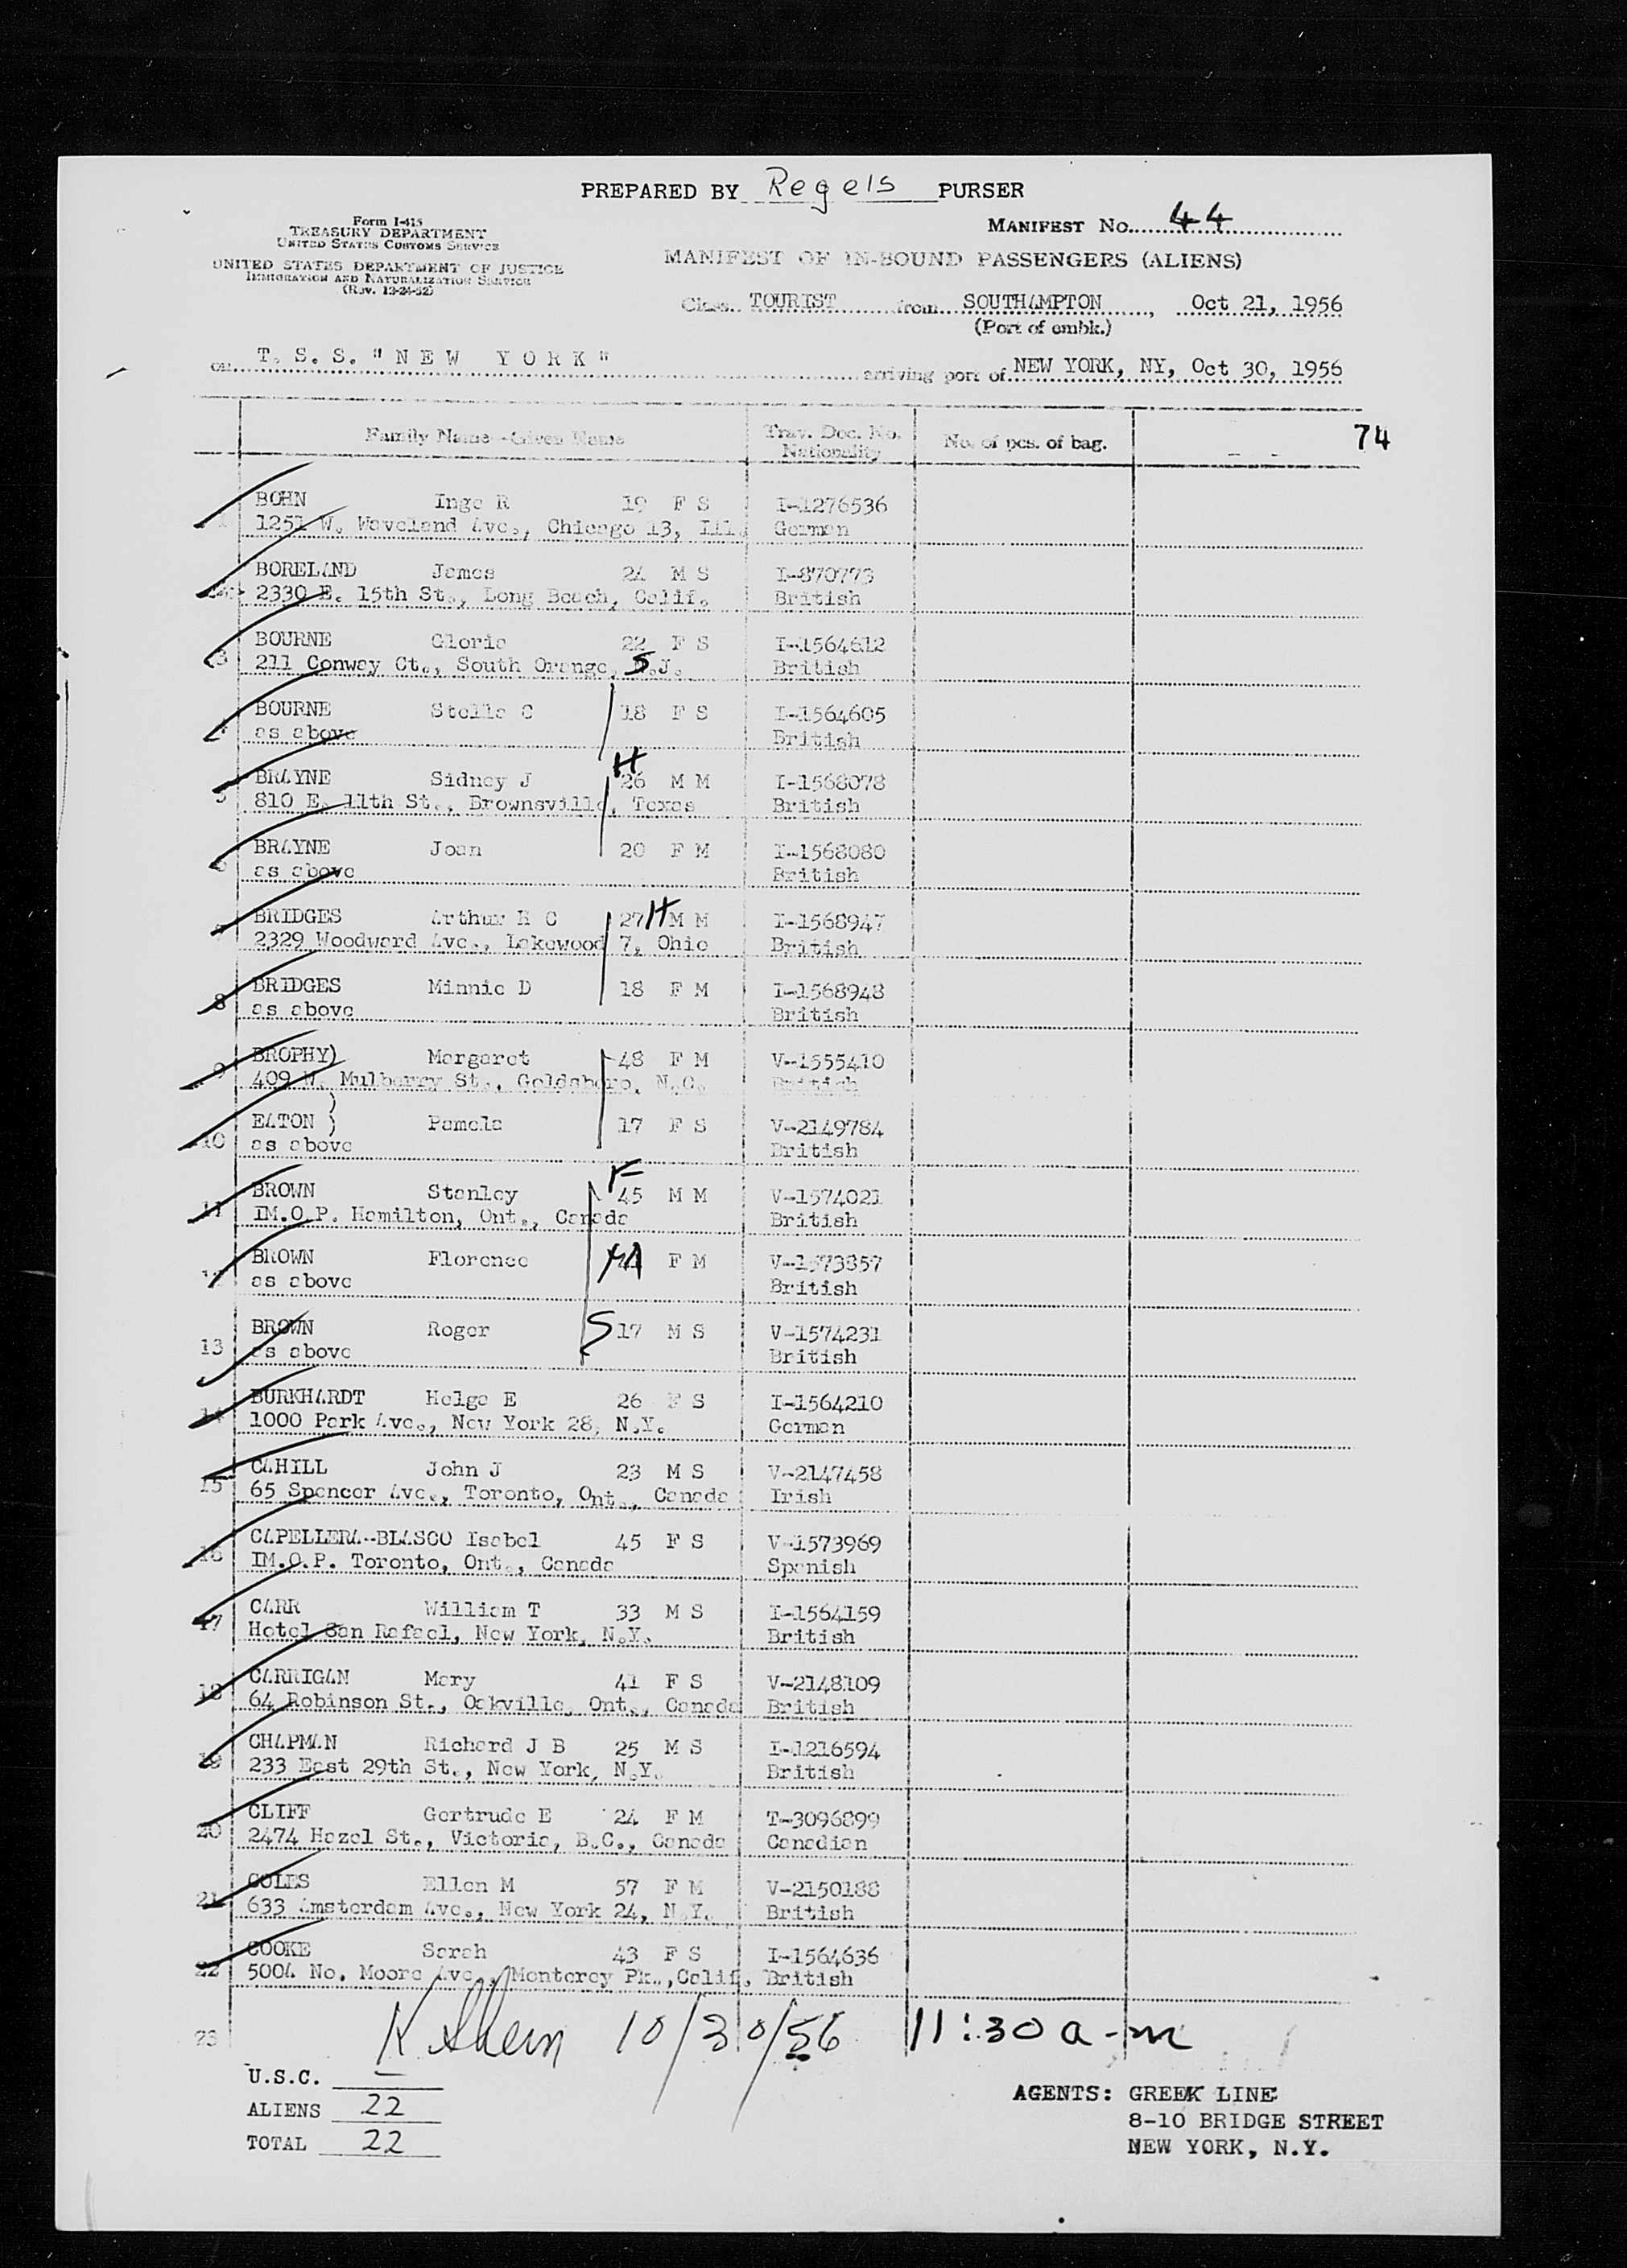 PREPARED BY Regels PURSER
Form I-415
TREASURY DEPARTMENT
UNITED STATES CUSTOMS SERVICE
UNITED STATES DEPARTMENT OF JUSTICE
IMMIGRATION AND NATURALIZATION SERVICE
(Rev. 12-24-52)
MANIFEST No. 44
MANIFEST OF IN-BOUND PASSENGERS (ALIENS)
Class TOURIST from SOUTHAMPTON, Oct 21, 1956
(Port of embk.)
on T. S. S. "NEW YORK" arriving port of NEW YORK, NY, Oct 30, 1956
Family Name--Given Name Trav. Doc. No. Nationality No. of pcs. of bag. 74
BOHN Inge R 19 F S I-1276536
1251 W. Waveland Ave., Chicago 13, Ill. German
BORELAND James 24 M S I-870773
2330 E. 15th St., Long Beach, Calif. British
BOURNE Gloria 22 F S I-1564612
3 211 Conway Ct., South Orange, S .J. British
BOURNE Stella C 18 F S I-1564605
4 as above British
H
BRAYNE Sidney J 26 M M I-1568078
5 810 E. 11th St., Brownsville, Texas British
BRAYNE Joan 20 F M I-1568080
6 as above British
BRIDGES Arthur H C 27 H M M I-1568947
7 2329 Woodward Ave., Lakewood 7, Ohio British
BRIDGES Minnie D 18 F M I-1568948
8 as above British
BROPHY) Margaret 48 F M V-1555410
9 409 W. Mulberry St., Goldsboro, N.C. British
)
EATON ) Pamela 17 F S V-2149784
10 as above British
F
BROWN Stanley 45 M M V-1574021
11 IM.O.P. Hamilton, Ont., Canada British
BROWN Florence F M V-1573857
12 as above British
BROWN Roger S 17 M S V-1574231
13 as above British
BURKHARDT Helga E 26 F S I-1564210
14 1000 Park Ave., New York 28, N.Y. German
CAHILL John J 23 M S V-2147458
15 65 Spencer Ave., Toronto, Ont., Canada Irish
CAPELLERA-BLASCO Isabel 45 F S V-1573969
16 IM.O.P. Toronto, Ont., Canada Spanish
CARR William T 33 M S I-1564159
17 Hotel San Rafael, New York, N.Y. British
CARRIGAN Mary 41 F S V-2148109
18 64 Robinson St., Oakville, Ont., Canada British
CHAPMAN Richard J B 25 M S I-1216594
19 233 East 29th St., New York, N.Y. British
CLIFF Gertrude E 24 F M T-3096899
20 2474 Hazel St., Victoria, B.C., Canada Canadian
COLES Ellen M 57 F M V-2150188
21 633 Amsterdam Ave., New York 24, N.Y. British
COOKE Sarah 43 F S I-1564636
22 500A No. Moore Ave., Monterey Pk., Calif. British
23 10/30/56 11:30 a-m
U.S.C. —
ALIENS 22
TOTAL 22
AGENTS: GREEK LINE
8-10 BRIDGE STREET
NEW YORK, N.Y.